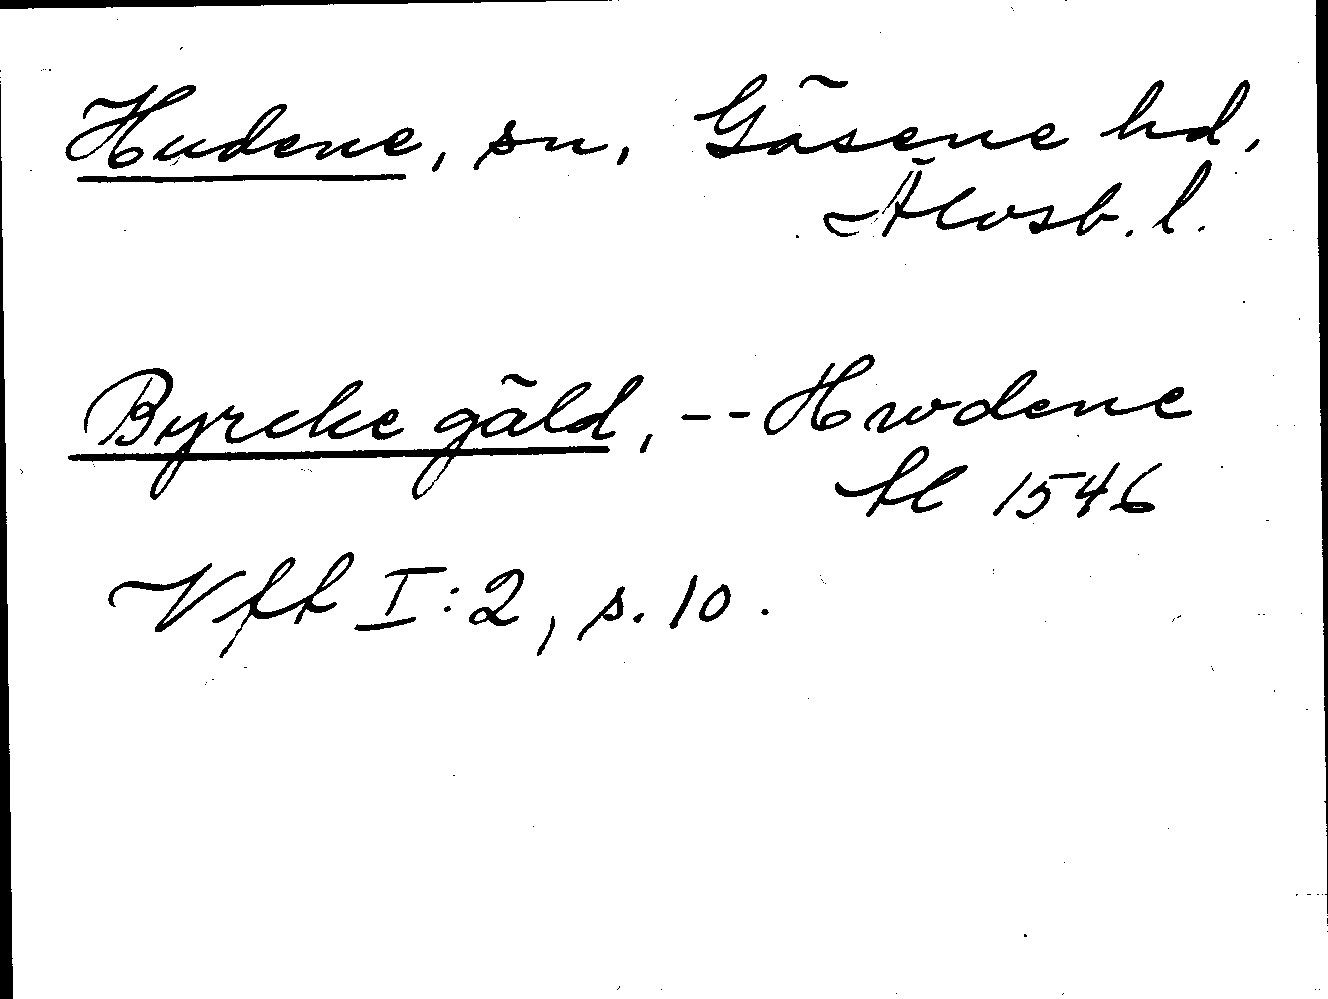 Hudene, sn, Gäsene hd,
Älvsb. l.
Byrcke gäld, -- Hwdene
hl 1546
Vff I:2, s. 10.